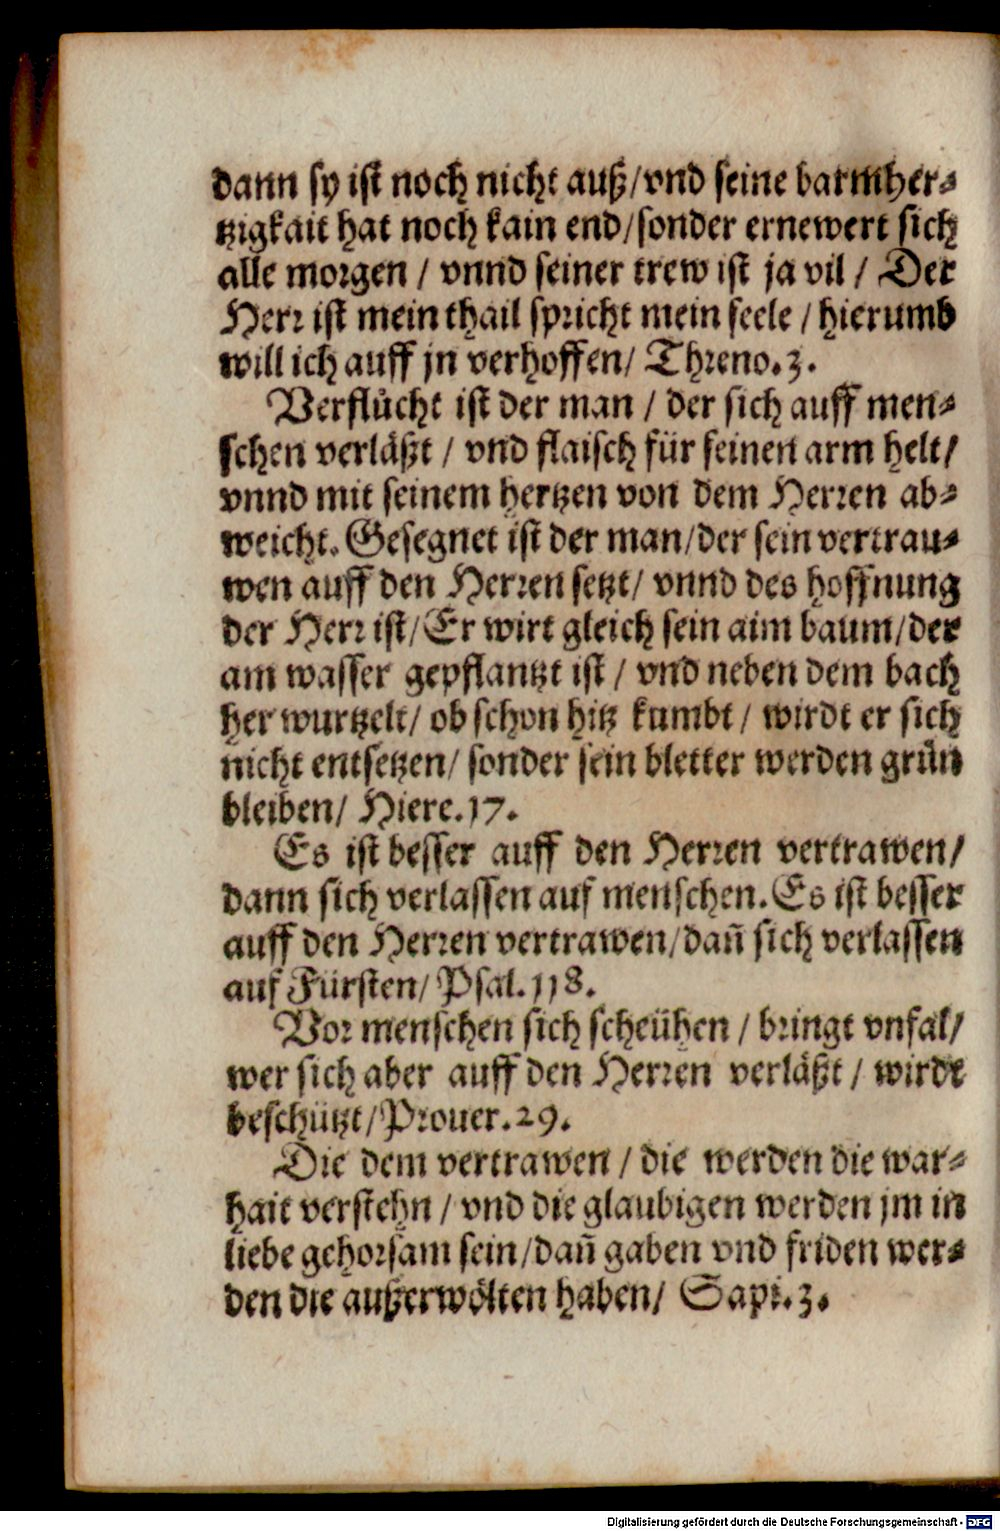 dann sy ist noch nicht auß/vnd seine barmher-
tzigkait hat noch kain end/sonder ernewert sich
alle morgen / vnnd seiner trew ist ja vil / Der
Herr ist mein thail spricht mein seele / hierumb
will ich auff jn verhoffen/ Threno.3.
Verflůcht ist der man / der sich auff men-
schen verläßt / vnd flaisch für seinen arm helt/
vnnd mit seinem hertzen von dem Herren ab-
weicht. Gesegnet ist der man/der sein vertrau-
wen auff den Herren setzt/ vnnd des hoffnung
der Herr ist/Er wirt gleich sein aim baum/der
am wasser gepflantzt ist / vnd neben dem bach
her wurtzelt/ ob schon hitz kumbt / wirdt er sich
nicht entsetzen/ sonder sein bletter werden grůn
bleiben/ Hiere.17.
Es ist besser auff den Herren vertrawen/
dann sich verlassen auf menschen. Es ist besser
auff den Herren vertrawen/dañ sich verlassen
auf Fürsten/ Psal.118.
Vor menschen sich scheühen / bringt vnfal/
wer sich aber auff den Herren verläßt / wirdt
beschützt/Prouer.29.
Die dem vertrawen / die werden die war-
hait verstehn / vnd die glaubigen werden jm in
liebe gehorsam sein/dañ gaben vnd friden wer-
den die außerwölten haben/ Sapi.3.
Digitalisierung gefördert durch die Deutsche Forschungsgemeinschaft - DFG